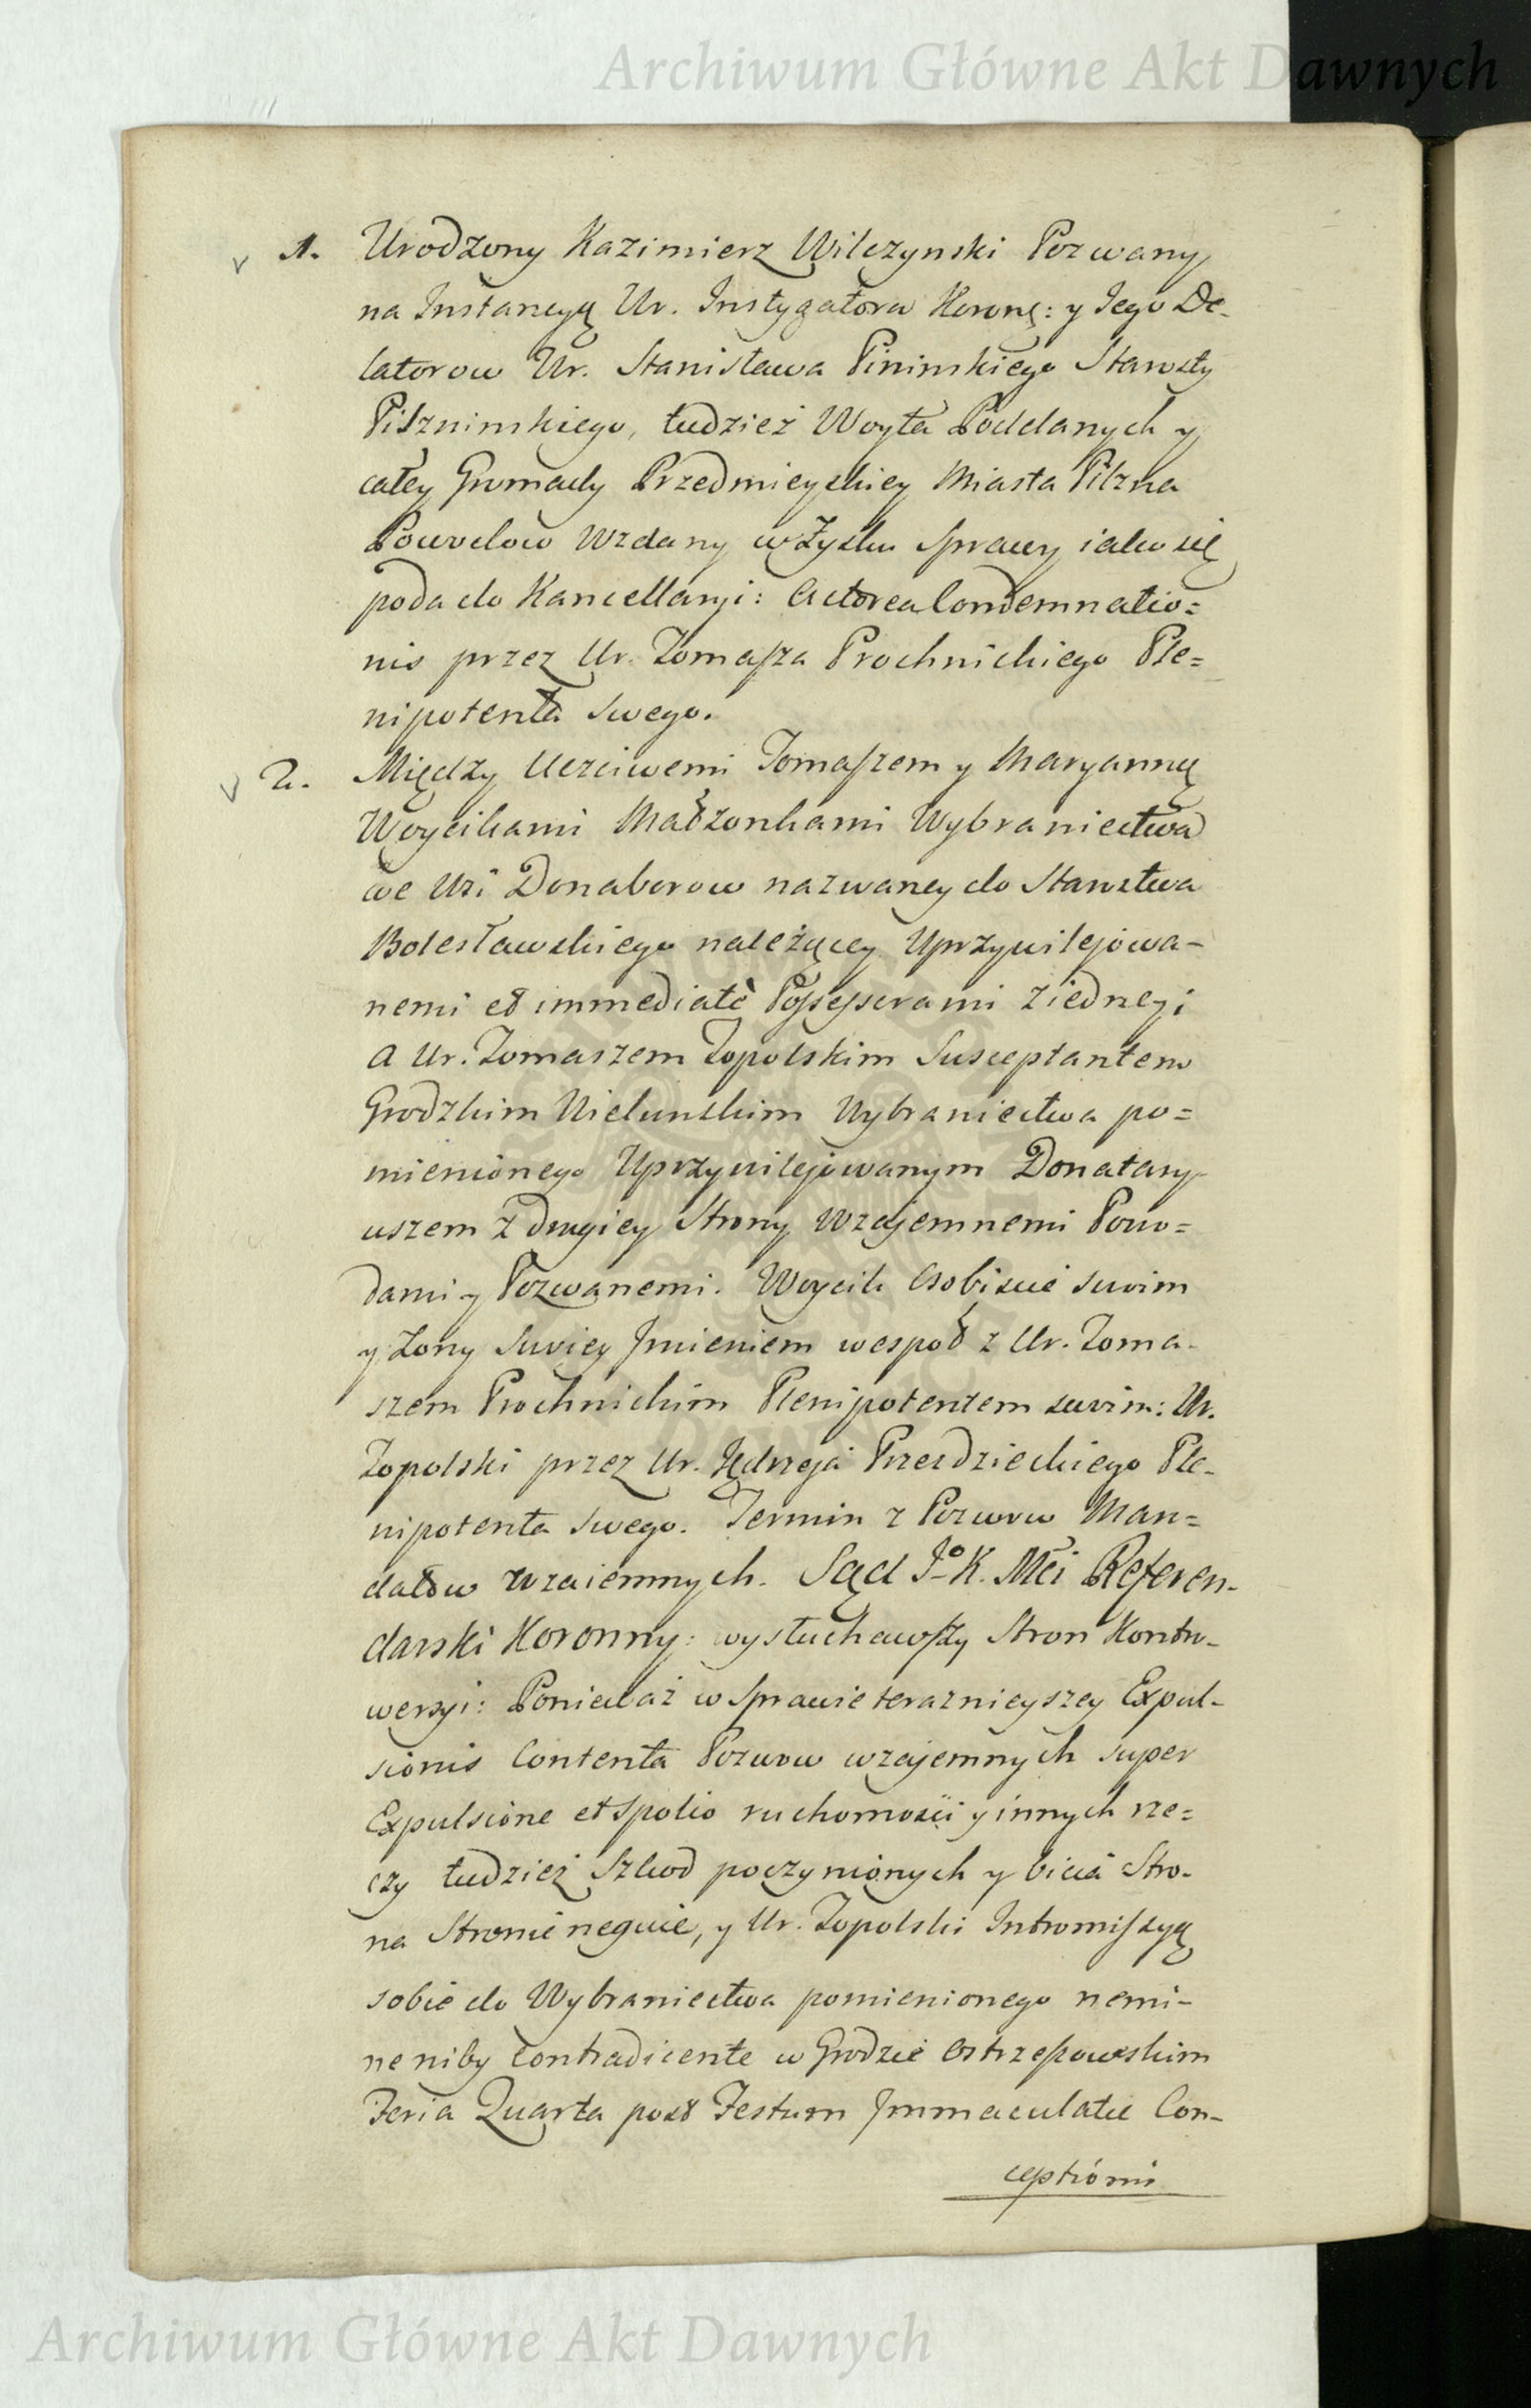 Archiwum Główne Akt Dawnych
1. Urodzony Kazimierz Wilczynski Pozwany
na Instancyą Ur. Instygatora Koronę: y Jego De-
latorow Ur. Stanisława Pininskiego Starosty
Pilzninskiego, tudzież Woyta Poddanych y
całey Gromady Przedmieyskiey Miasta Pilzna
Powodow wzdany w Zysku sprawy iako się
poda do Kancellaryi: Actorea Condemnatio=
nis przez Ur. Tomaszza Prochnickiego Ple=
nipotenta swego.
2. Między Uczciwemi Tomaszem y Maryanną
Woycikami Małzonkami Wybraniectwa
we Wsi Donaborow nazwaney do Starostwa
Bolesławskiego należącey Uprzywilejowa-
nemi et immediatè Possessorami z iedney;
A Ur. Tomaszem Topolskim Susceptantem
Grodzkim Wielunskim Wybraniectwa po=
mienionego Uprzywilejowanym Donatary-
uszem z drugiey Strony wzajemnemi Powo=
dami y Pozwanemi. Woycik Osobiscie swoim
y Zony Swoiey Jmieniem wespoł z Ur. Toma-
szem Prochnickim Plenipotentem swoim: Ur.
Topolski przez Ur. Jędrzeja Przezdzieckiego Ple-
nipotenta swego. Termin z Pozwow Man=
datow wzaiemnych. Sąd Jo K. Mci Referen-
darski Koronny: wysłuchawszy Stron Kontro-
wersyi: Ponieważ w Sprawie terazniejszey Expul-
sionis Contenta Pozwow wzajemnych super
Expulsione et Spolio ruchomosci y innych rze=
czy tudzież Szkod poczynionych y bicia Stro-
na Stronie neguie, y Ur. Topolski Intromissyą
sobie do Wybraniectwa pomienionego nemi-
ne niby contradicente w Grodzie Ostrzeszowskim
Feria Quarta post Festum Jmmaculatæ Con-
ceptionis
Archiwum Główne Akt Dawnych